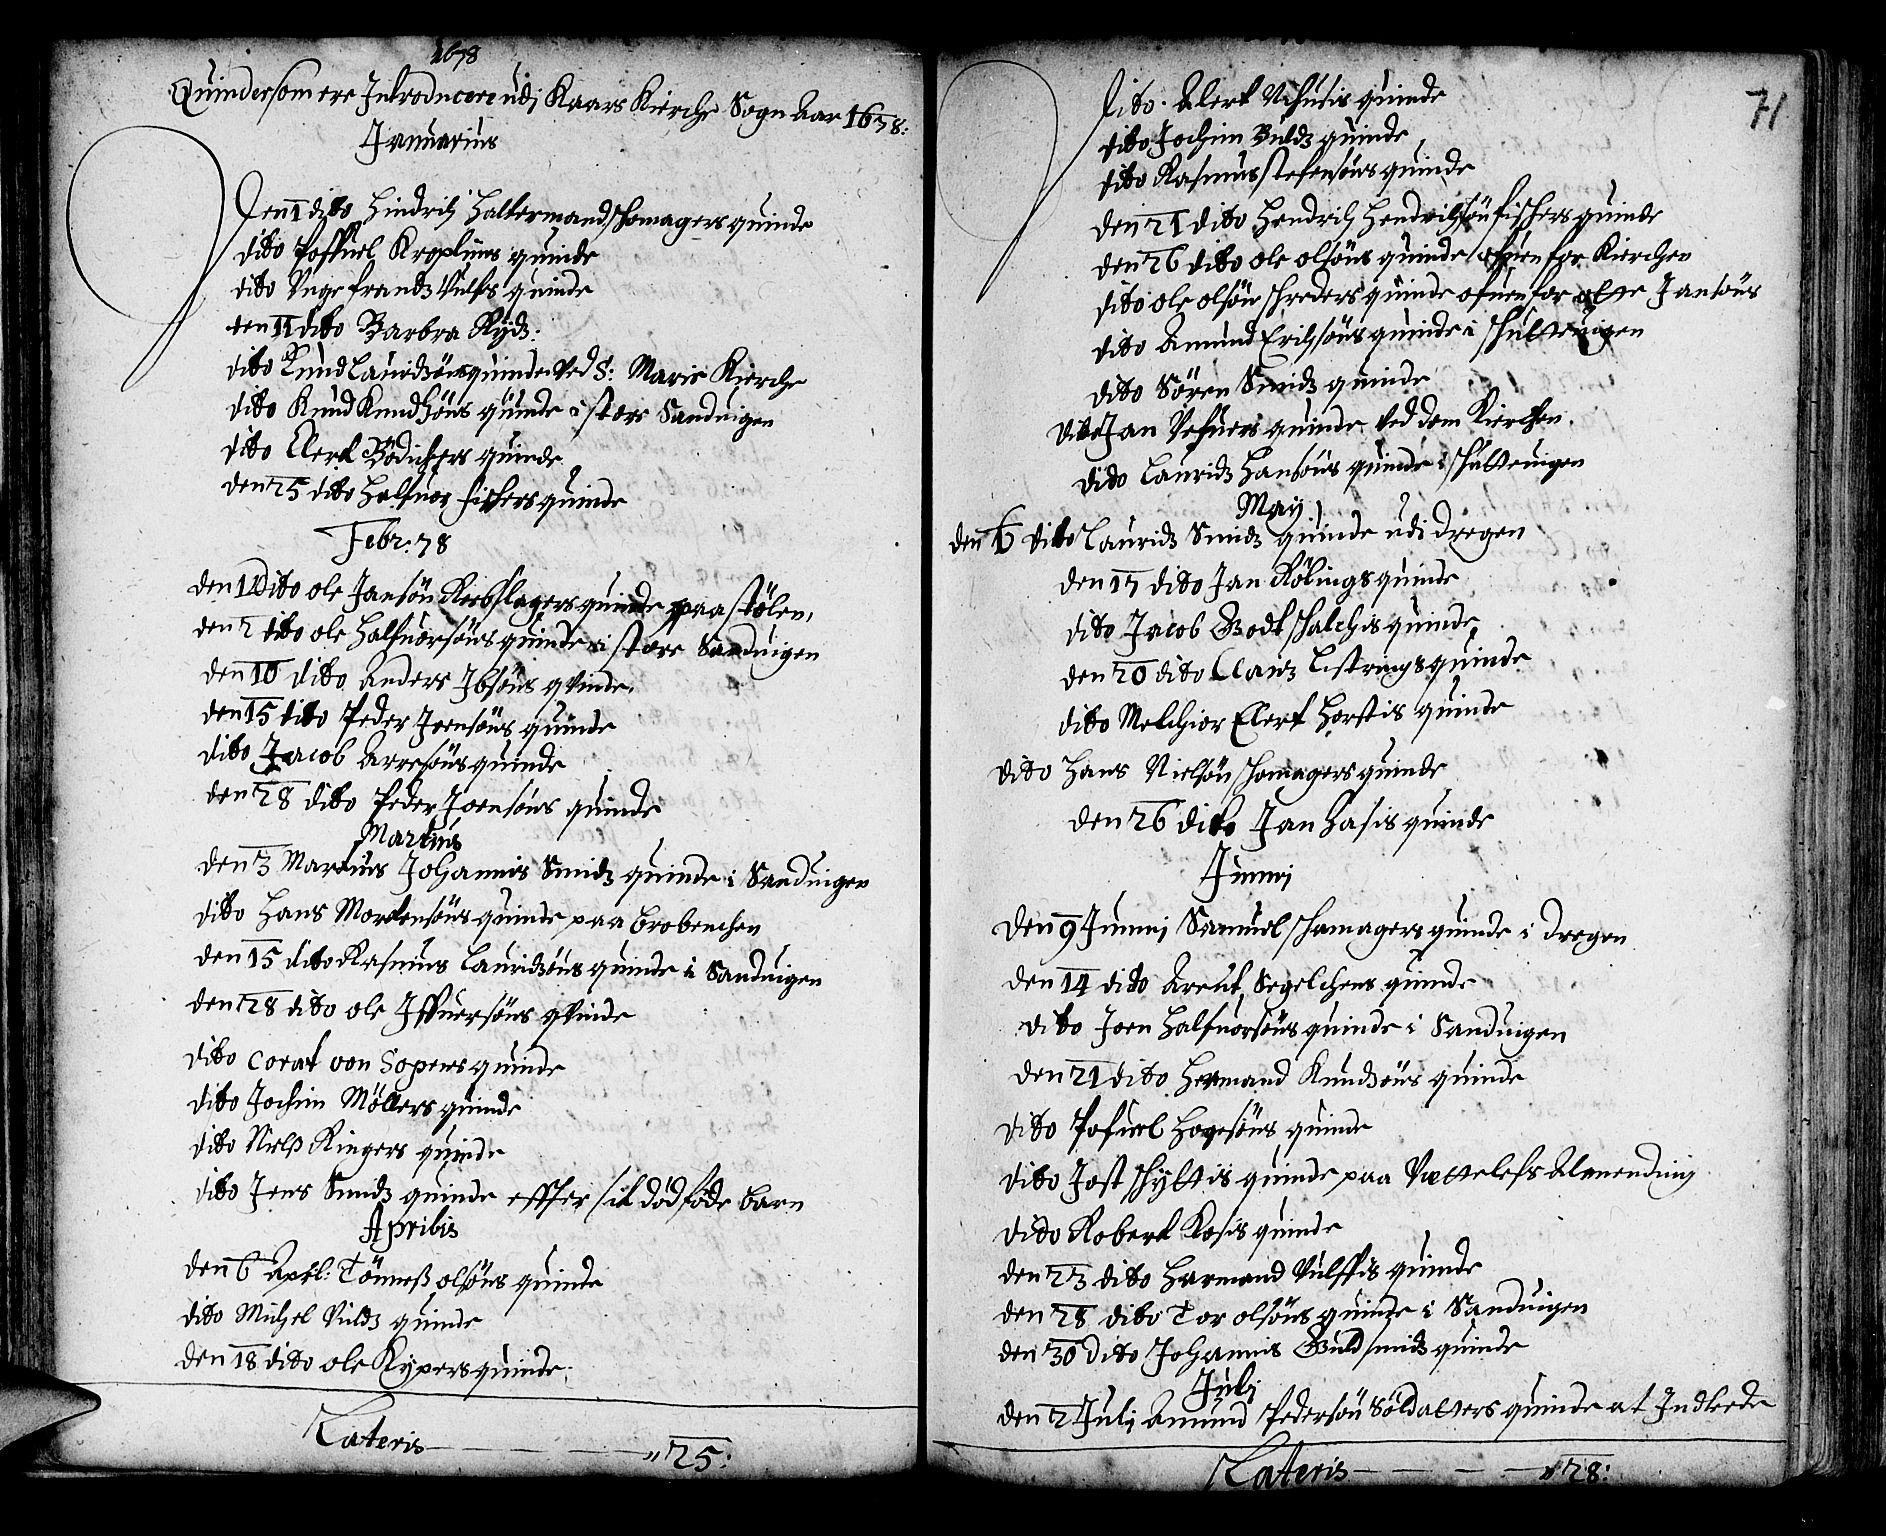 1678
Quinder som ere Introducere udj Kaars Kierche Sogn Aar 1678:
Januarius
Den 1 dito Hindrich Haltermand schomagers quinde
dito Poffuel Kroplins quinde
dito Unge frandz Vulfs quinde
den 11 dito Barbra Rydz:
dito Knud Lauridzöns quinde ved S: Marie Kierche
dito Knud Knudsöns quinde i store Sanduigen
dito Clert Bödichers quinde
den 25 dito Halfuor fischers quinde
Febr: 78
den dito ole Jansön Rebslagers quinde paa stölen,
den 2 dito ole Halfuorsöns quinde i store Sanduigen
den 10 dito Anders Ibsöns qvinde,
den 15 dito Peder Joensöns quinde
dito Jacob Arresöns quinde
den 28 dito Peder Joensöns quinde
Martius
den 3 Martius Johannis Smidz quinde i Sanduigen
dito Hans Mortensöns quinde paa Brobenchen
den 15 dito Rasmus Lauridzöns quinde i Sanduigen
den 28 dito ole Iffuersöns qvinde
dito Corat von Sopers quinde
dito Jochim Möllers quinde
dito Nielß Ringers quinde
dito Jens Smidz quinde effter sit död föde barn
Aprilis
den 6 April: Tönneß olsöns quinde
dito Michel Vildz quinde
den 18 dito ole Kypers quinde.
Lateris — — — — — " 25:
71
dito. Alert quinde
dito Jochim Buldz quinde
dito Rasmus stefensöns quinde
den 21 dito Hendrich Hendrichsön fischers quinde
den 26 dito ole olsöns quinde ofuen for Kierchen
dito ole olsön schreders quinde ofuen for olle Jansöns
dito Amund Erichsöns quinde i schutteuigen
dito Sören Smidz quinde
dito Jan Vefuers quinde ved dom Kierchen
dito Lauridz Hansöns quinde i schutteuigen
May
den 6 dito Lauridz Smidz quinde udi dregen
den 15 dito Jan Rölings quinde
dito Jacob Godt schalchis quinde
den 20 dito Clauz Listrings quinde
dito Melchior Clert Horstis quinde
dito Hans Nielsön schomagers quinde
den 26 dito Jan Hasis quinde
Junnj
den 9 Junnj Samuel schomagers quinde i dregen
den 14 dito Arent Segelchens quinde
dito Joen Halfuorsöns quinde i Sanduigen
den 21 dito Hermand Knudzöns quinde
dito Pofuel Hogesöns quinde
dito Jost schyttis quinde paa Vettelefs Almending
dito Robert Rosis quinde
den 23 dito Harmand Vulffis quinde
den 28 dito Tor olsöns quinde i Sanduigen
den 30 dito Johannis Guldsmidz quinde
Julj
den 2 Julj Amund Pedersön Söldatters quinde at Indleede
Lateris — — — — " 28: